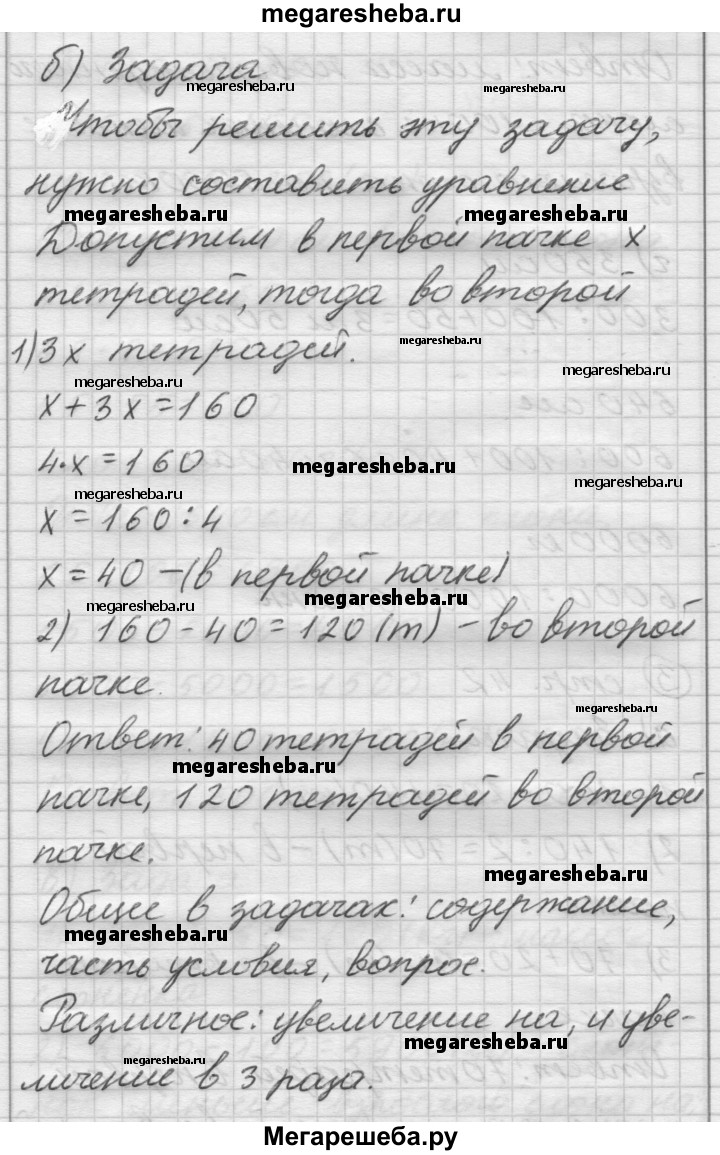 megaresheba.ru
б) Задача
megaresheba.ru
megaresheba.ru
Чтобы решить эту задачу,
нужно составить уравнение
megaresheba.ru
megaresheba.ru
Допустим в первой пачке x
тетрадей, тогда во второй
1) 3x тетрадей.
megaresheba.ru
megaresheba.ru
megaresheba.ru
x + 3x = 160
4·x = 160
megaresheba.ru
megaresheba.ru
megaresheba.ru
x = 160 : 4
x = 40 – (в первой пачке)
megaresheba.ru
megaresheba.ru
2) 160 - 40 = 120 (т) – во второй
пачке.
megaresheba.ru
Ответ: 40 тетрадей в первой
megaresheba.ru
пачке, 120 тетрадей во второй
пачке.
megaresheba.ru
Общее в задачах: содержание,
megaresheba.ru
часть условия, вопрос.
Различное: увеличение на, и уве-
megaresheba.ru
megaresheba.ru
личение в 3 раза.
Мегарешеба.ру